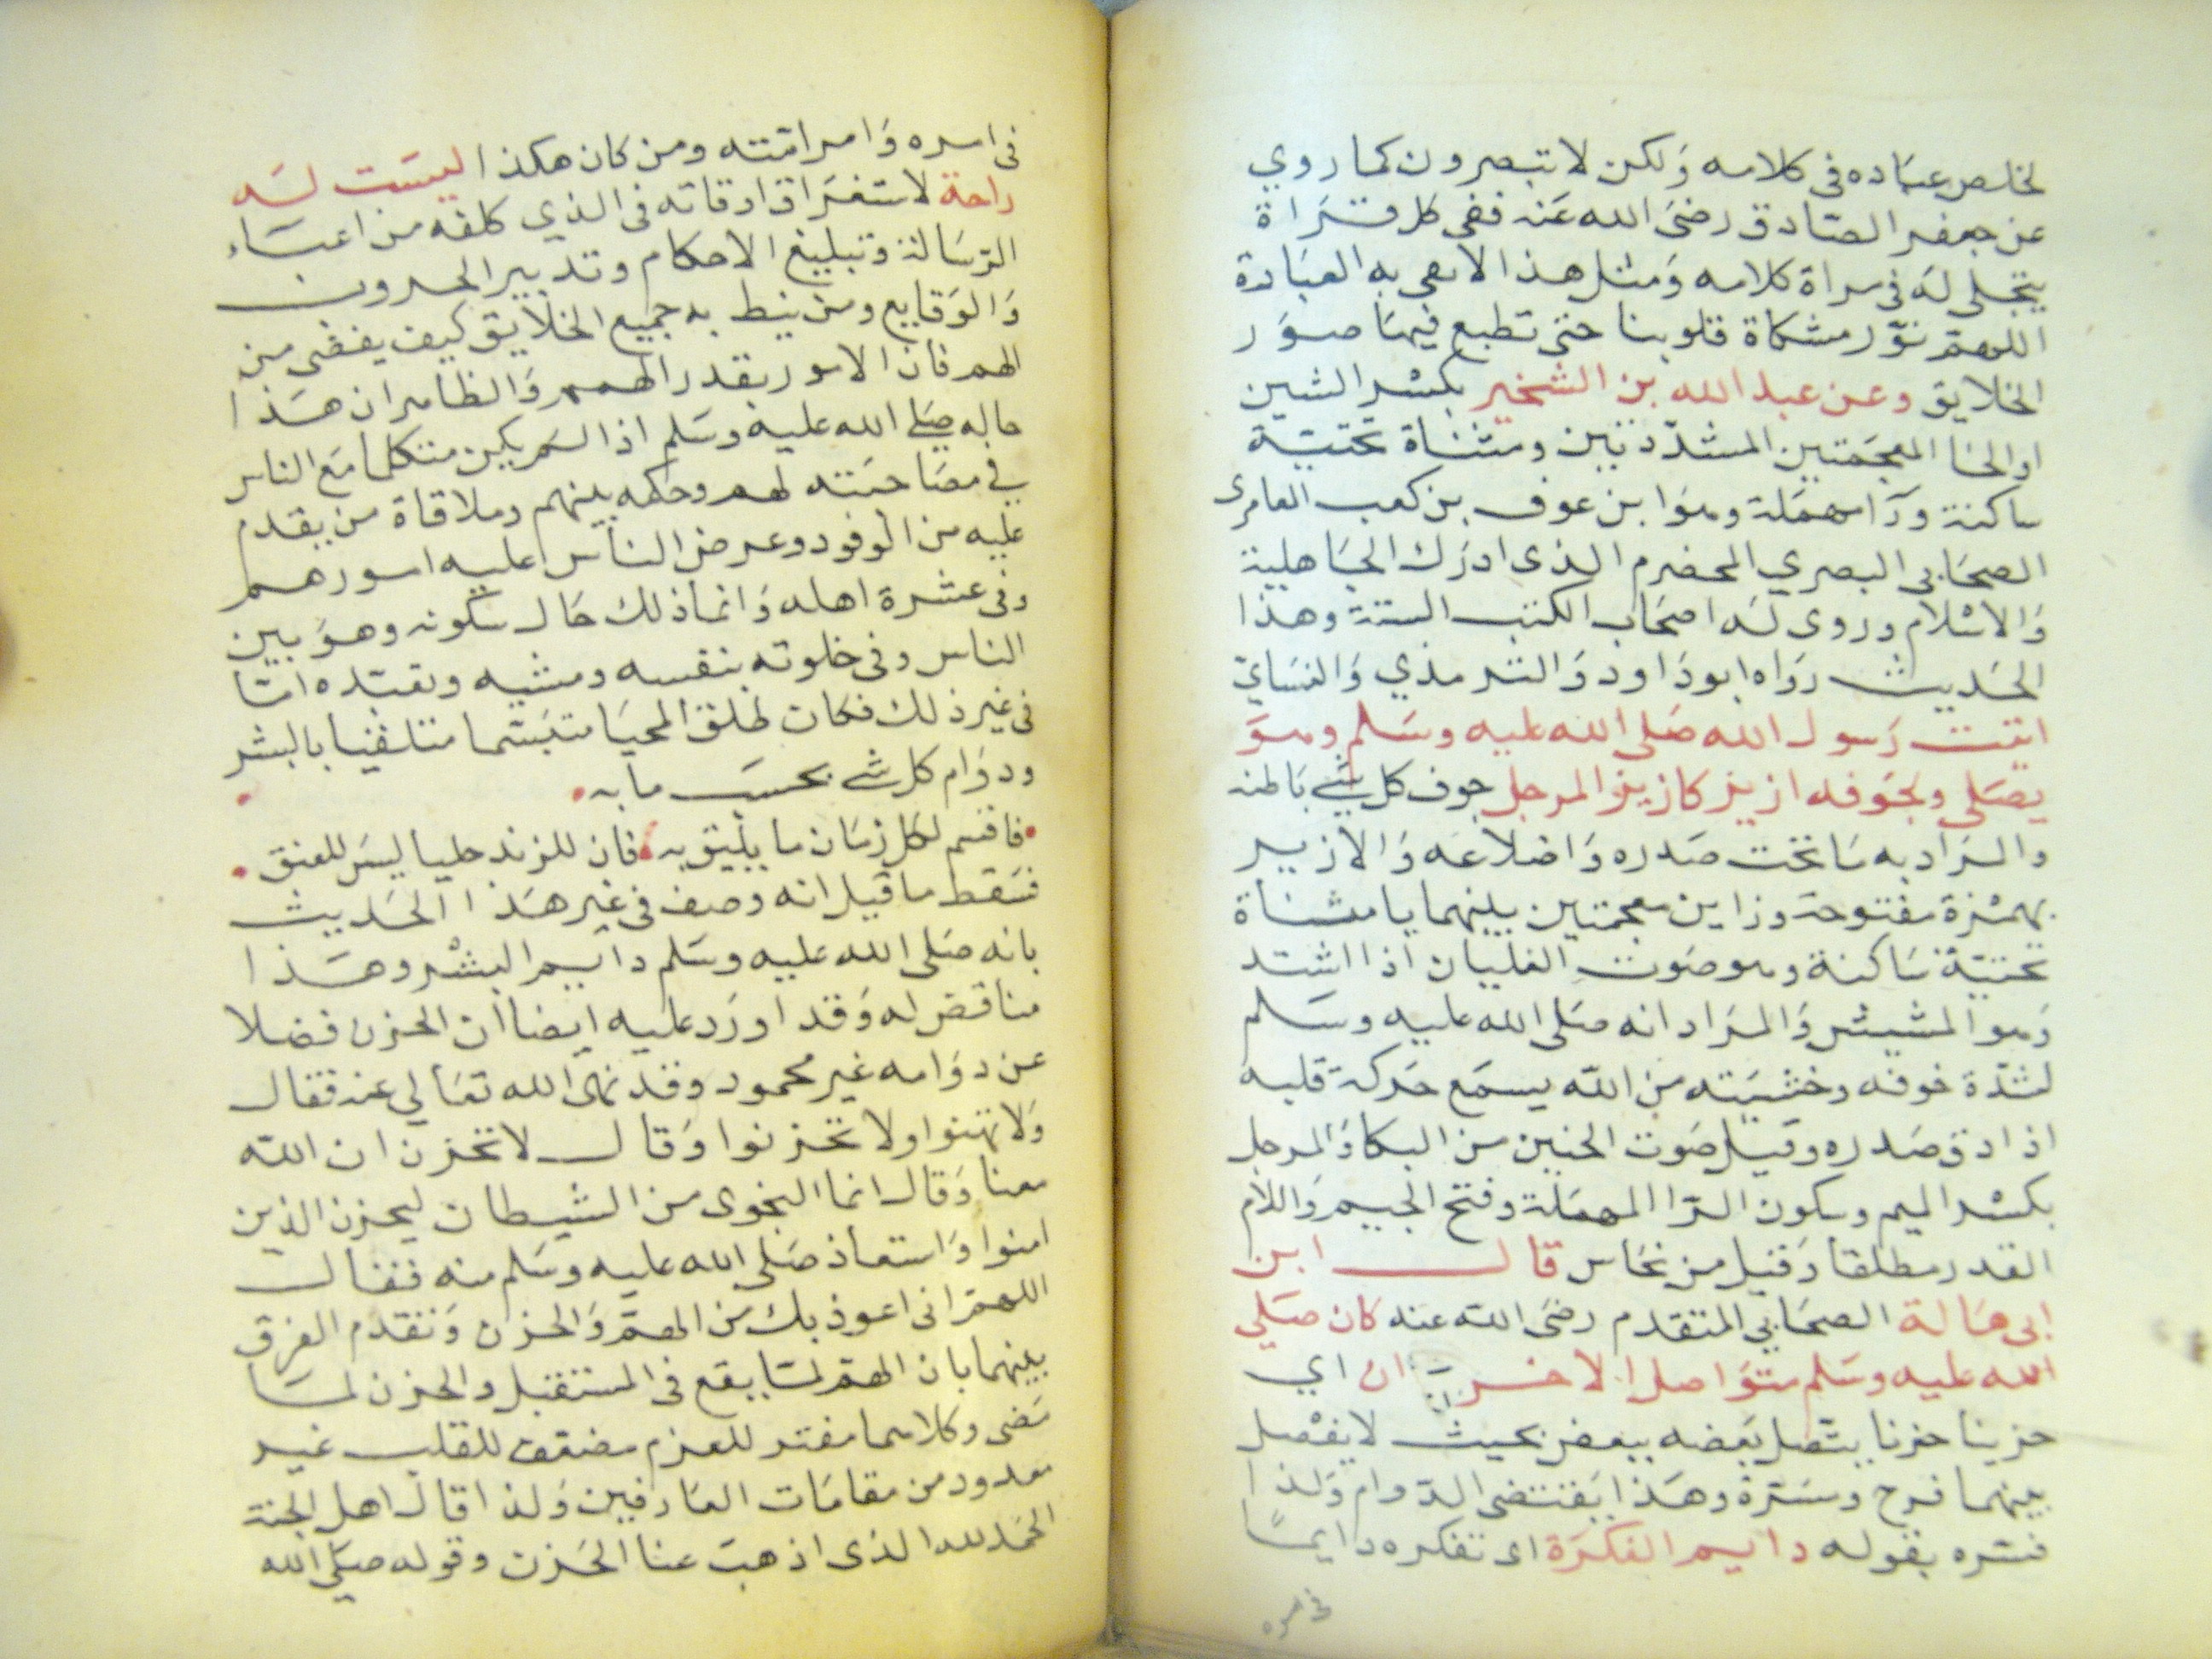 لخلص عباده فى كلامه وَلكن لا تبصرون كما روي
عن جعفر الصّادق رضىَ الله عَنه ففى كل قــرَاة
يتجلى له فى مراة كلامه وَمثل هذا الا تفى به العبَادة
اللهمّ نوّر مشكاة قلوبنا حتى تطبع فيهَا صوَر
الخلايق وعن عبد الله بن الشخير بكسْر الشين
اوالخا المعجَمتين المشدّدتين ومثنَاة تحتيّة
ساكنة ورَا مهمَلة وهوَا بن عوف بن كعب العامرى
الصحَابى البصري المخضرم الذى ادرَك الجَاهلية
وَالاسْلام وروى لَه اصحَاب الكتب الستة وهذا
الحَديث روَاه ابودَاود وَالترمذي وَالنسَايّ
اتيت رَسول الله صَلى الله عليه وسَلم وهوَ
يصَلى ولجَوفه ازيز كازيز المرجل جوف كل شَيْ بَاطنه
والمرَاد به مَا تحت صَدره وَاضلاعه وَالازيز
بهمْزة مفتوحة وزاين معجمتين بينهما يا مثنَاة
تحتيّة سَاكنة وهو صَوت الغليان اذا اشتد
وَهو المشيش وَالمرَاد انه صَلى الله عليه وسَلم
لشدّة خوفه وخشيَته من الله يسمَع حَركة قلبه
اذ ادق صَدره وقيل صَوت الحنين من البكا وَالمرجل
بكسْر الميم وسكون الرّا المهمَلة وفتح الجيم وَاللام
القدر مطلقا وَقيل من نحَاس قال ابن
ابى هَالة الصحَابي المتقدم رضىَ الله عنه كان صَلي
الله عليه وسَلم متوَاصل الاحزان اي
حزينا حزنا يتّصل بَعضه ببعض بحيث لا يفصْل
بينهما فرح ومسَرة وهَذا يَقتضى الدّوام وَلذا
فسّره بقوله دايم الفكرَة اى تفكره دايمًا
فى امره
فى امره وَامر امّته ومن كان هكذا ليسَت لَه
راحة لاستغرَاق اوقاته فى الذي كلفه من اعبَاء
الرّسَالة وَتبليغ الاحكام وتدبير الحروب
وَالوَقايع ومن ينيط به جميع الخلايق كيف يفضى من
الهم فان الامور بقدر الهمم وَالظاهر ان هَذا
حاله صَلي الله عليه وسَلم اذا لَم يكن متكلما مَع الناس
في مصَاحبَته لهم وحكمه بينهم وملاقاة من يقدم
عليه من الوفود وعرض الناس عليه امورهم
وفى عشرة اهله وَانما ذلك حَال سكونه وهوَ بين
الناس وفى خلوته بنفسه ومشيه وتعبّده امّا
فى غير ذلك فكان طلق المحيَا متبَسّما متلقيا بالبشر
ودوَام كل شَي بحسَب ما به
فاقسم لكل زمَان ما يليق به فان للزند حليا ليسَ للعنق
فسَقط ما قيل انه وصف فى غير هَذا الحَديث
بانه صَلى الله عليه وسَلم دايم البشْر وهَذا
مناقض له وَقد اورَد عليه ايضا ان الحزن فضلا
عن دوَامه غير محمود وقد نهى الله تعَالي عنه فقال
وَلا تهنوا ولا تحزنوا وَقال لا تحزن ان الله
معنا وَقال انما النجوى من الشيطان ليحزن الذين
امنوا وَاستعاذ صَلى الله عليه وسَلم منه فقال
اللهمّ انى اعوذ بك من الهمّ وَالحزن وَتقدم الفرق
بينهما بان الهمّ لمَا يقع فى المستقبل والحزن لمَا
مَضى وكلاهما مفتر للعزم مضعف للقلب غير
معدود من مقامَات العَارفين وَلذا قال اهل الجنة
الحَمد لله الذى اذهبَ عنا الحَزن وقوله صَلى الله